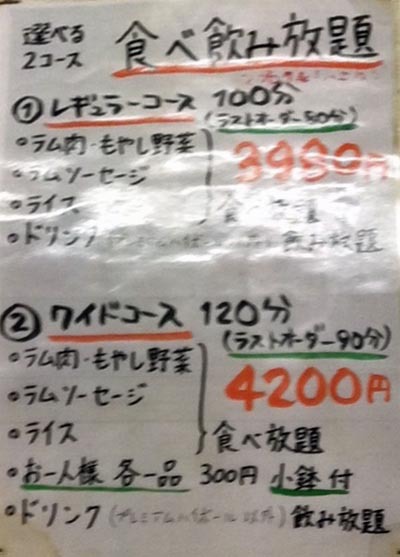 選べる
2コース
食べ飲み放題
① レギュラーコース 100分
(ラストオーダー80分)
○ラム肉・もやし野菜
○ラムソーセージ
3980円
○ライス
食べ放題
○ドリンク 飲み放題
② ワイドコース 120分
(ラストオーダー90分)
○ラム肉・もやし野菜
○ラムソーセージ
4200円
○ライス
食べ放題
○お一人様 各一品 300円 小鉢付
○ドリンク(プレミアムハイボール以外) 飲み放題